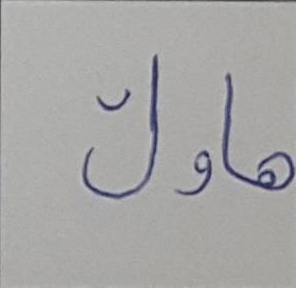 هاوڵ